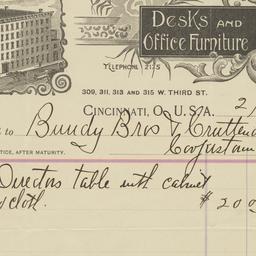 DESKS AND
OFFICE FURNITURE
TELEPHONE 2175
309, 311, 313 AND 315 W. THIRD ST.
CINCINNATI, O., U.S.A. 2
to Bundy Bros &
TICE, AFTER MATURITY.
Directors table with cabinet
cloth. $ 20 0